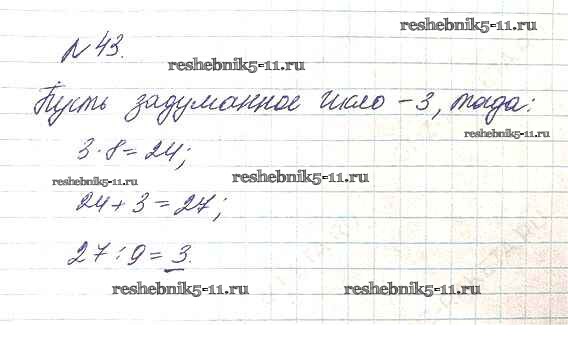 reshebnik5-11.ru
№43.
reshebnik5-11.ru
Пусть задуманное число – 3, тогда:
reshebnik5-11.ru
3·8=24;
reshebnik5-11.ru
reshebnik5-11.ru
24+3=27;
27:9=3.
reshebnik5-11.ru reshebnik5-11.ru